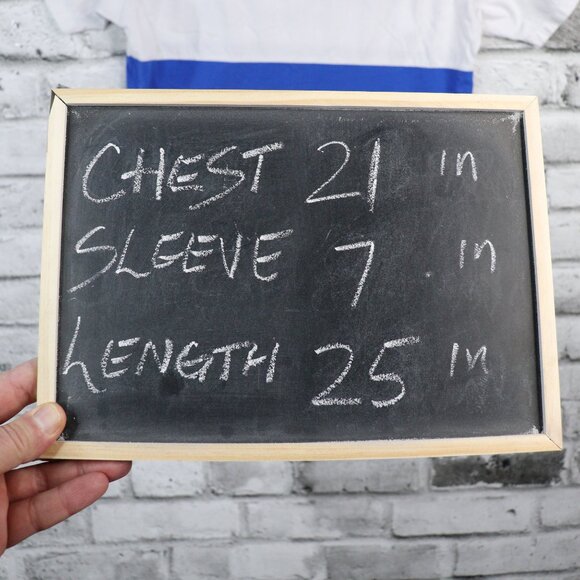 CHEST 21 in
SLEEVE 7 in
LENGTH 25 in